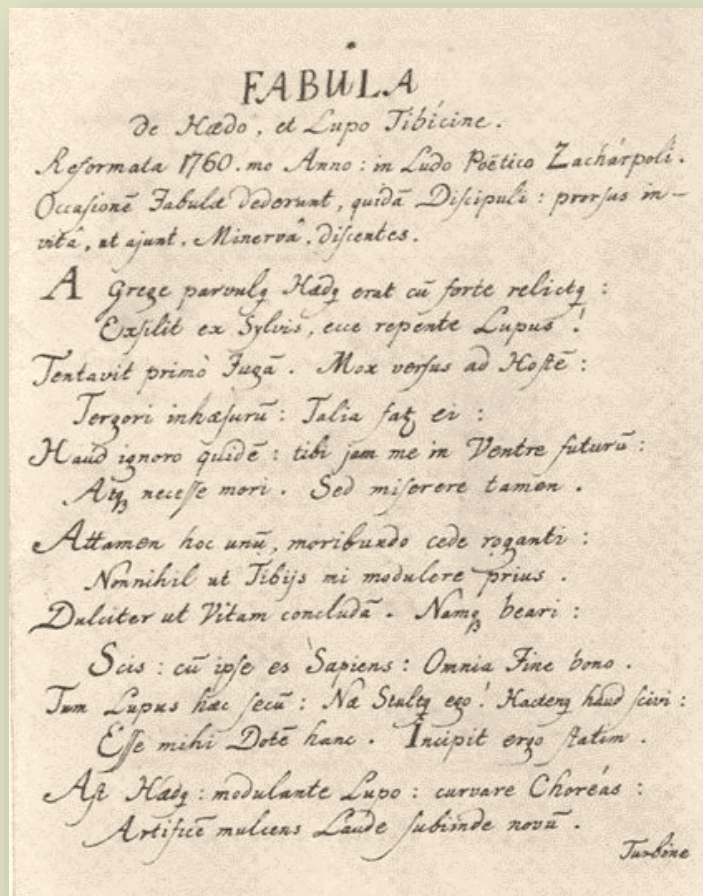 FABULA
de Hædo, et Lupo Tibicine.
Reformata 1760.mo Anno: in Ludo Poëtico Zachárpoli.
Occasionē Fabulæ dederunt, quidā Diſcipuli: prorſus in-
vitâ, ut ajunt, Minervâ, diſcentes.
A Grege parvulꝯ Hædꝯ erat cū forte relictꝯ:
Exſilit ex Sylvis, ecce repente Lupus!
Tentavit primò Fugā. Mox verſus ad Hoſtē:
Tergori inhæſurū: Talia fatꝯ ei:
Haud ignoro quidē: tibi jam me in Ventre futurū:
Atqꝫ neceſſe mori. Sed miſerere tamen.
Attamen hoc unū, moribundo cede roganti:
Nonnihil ut Tibijs mi modulere prius.
Dulciter ut Vitam concludā. Namqꝫ beari:
Scis: cū ipſe es Sapiens: Omnia Fine bono.
Tum Lupus hæc ſecū: Næ Stultꝯ ego! Hactenꝯ haud ſcivi:
Eſſe mihi Dotē hanc. Incipit ergo ſtatim.
Aſt Hædꝯ: modulante Lupo: curvare Choréas:
Artificē mulcens Laude ſubinde novū.
Turbine